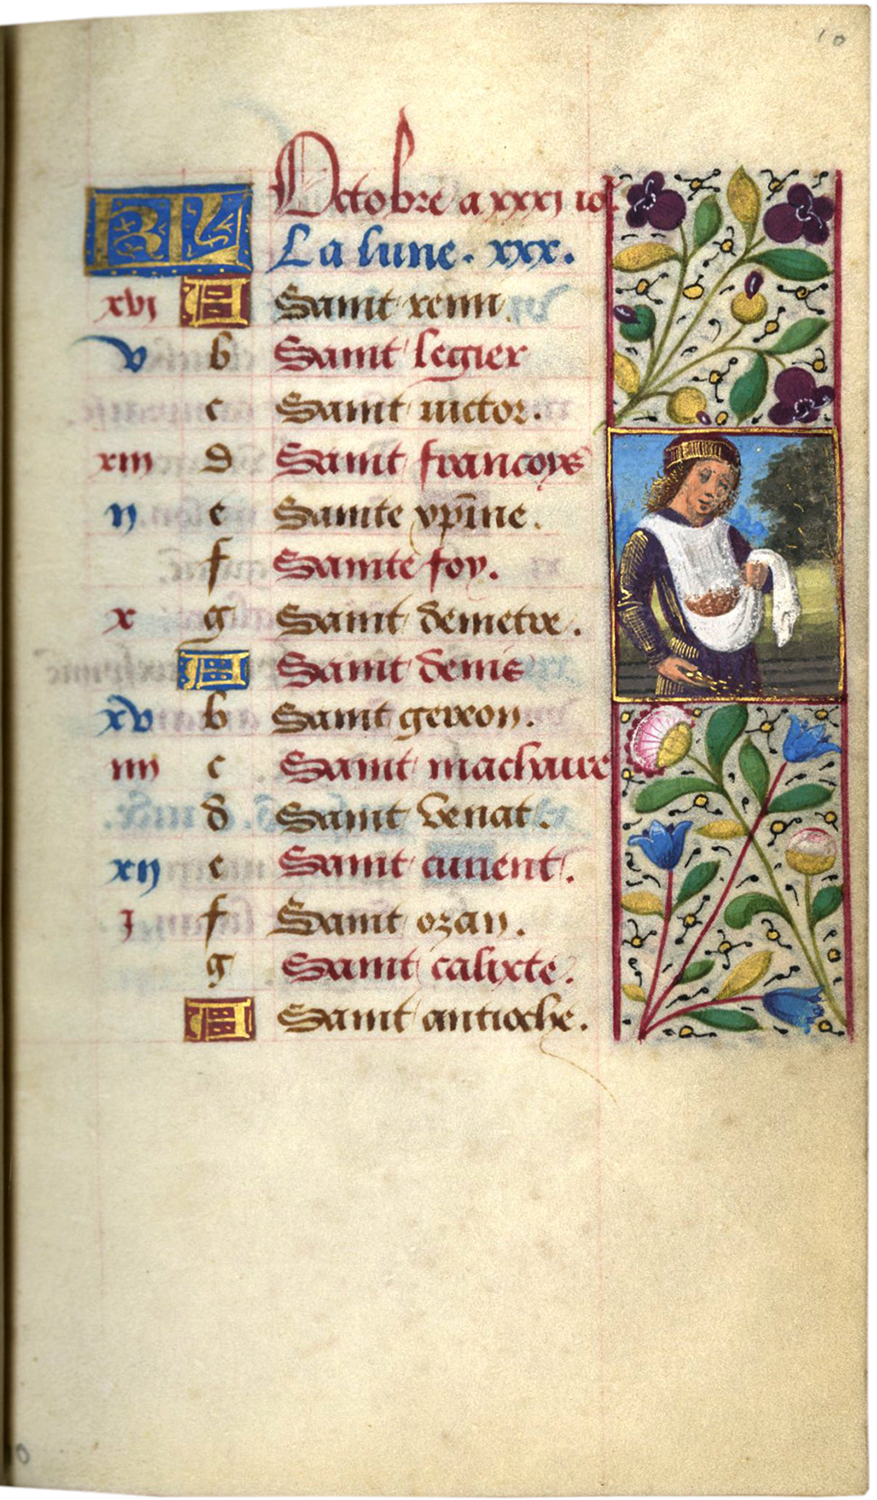 10
KL Octobre a xxxi io.
La lune. xxx.
xvi A Saint remi.
v b Saint legier
c Saint victor.
xiii d Saint francoys
ii e Sainte xp̄ine.
f Sainte foy.
x g Saint demetre.
A Saint denis
xv b Saint gereon.
iiii c Saint machaire
d Saint venat.
xii e Saint
i f Saint ozan.
g Saint calixte.
A Saint antioche.